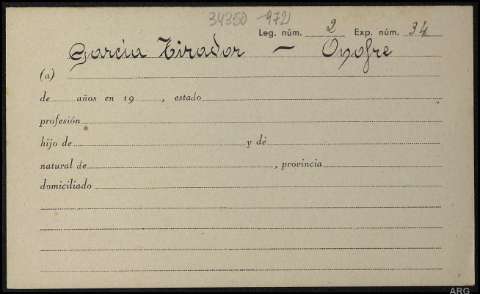 34350 1972
Leg. núm. 2 Exp. núm. 34
Garcia Tirador — Onofre
(a)
de años en 19 , estado
profesión
hijo de y de
natural de , provincia
domiciliado
ARG